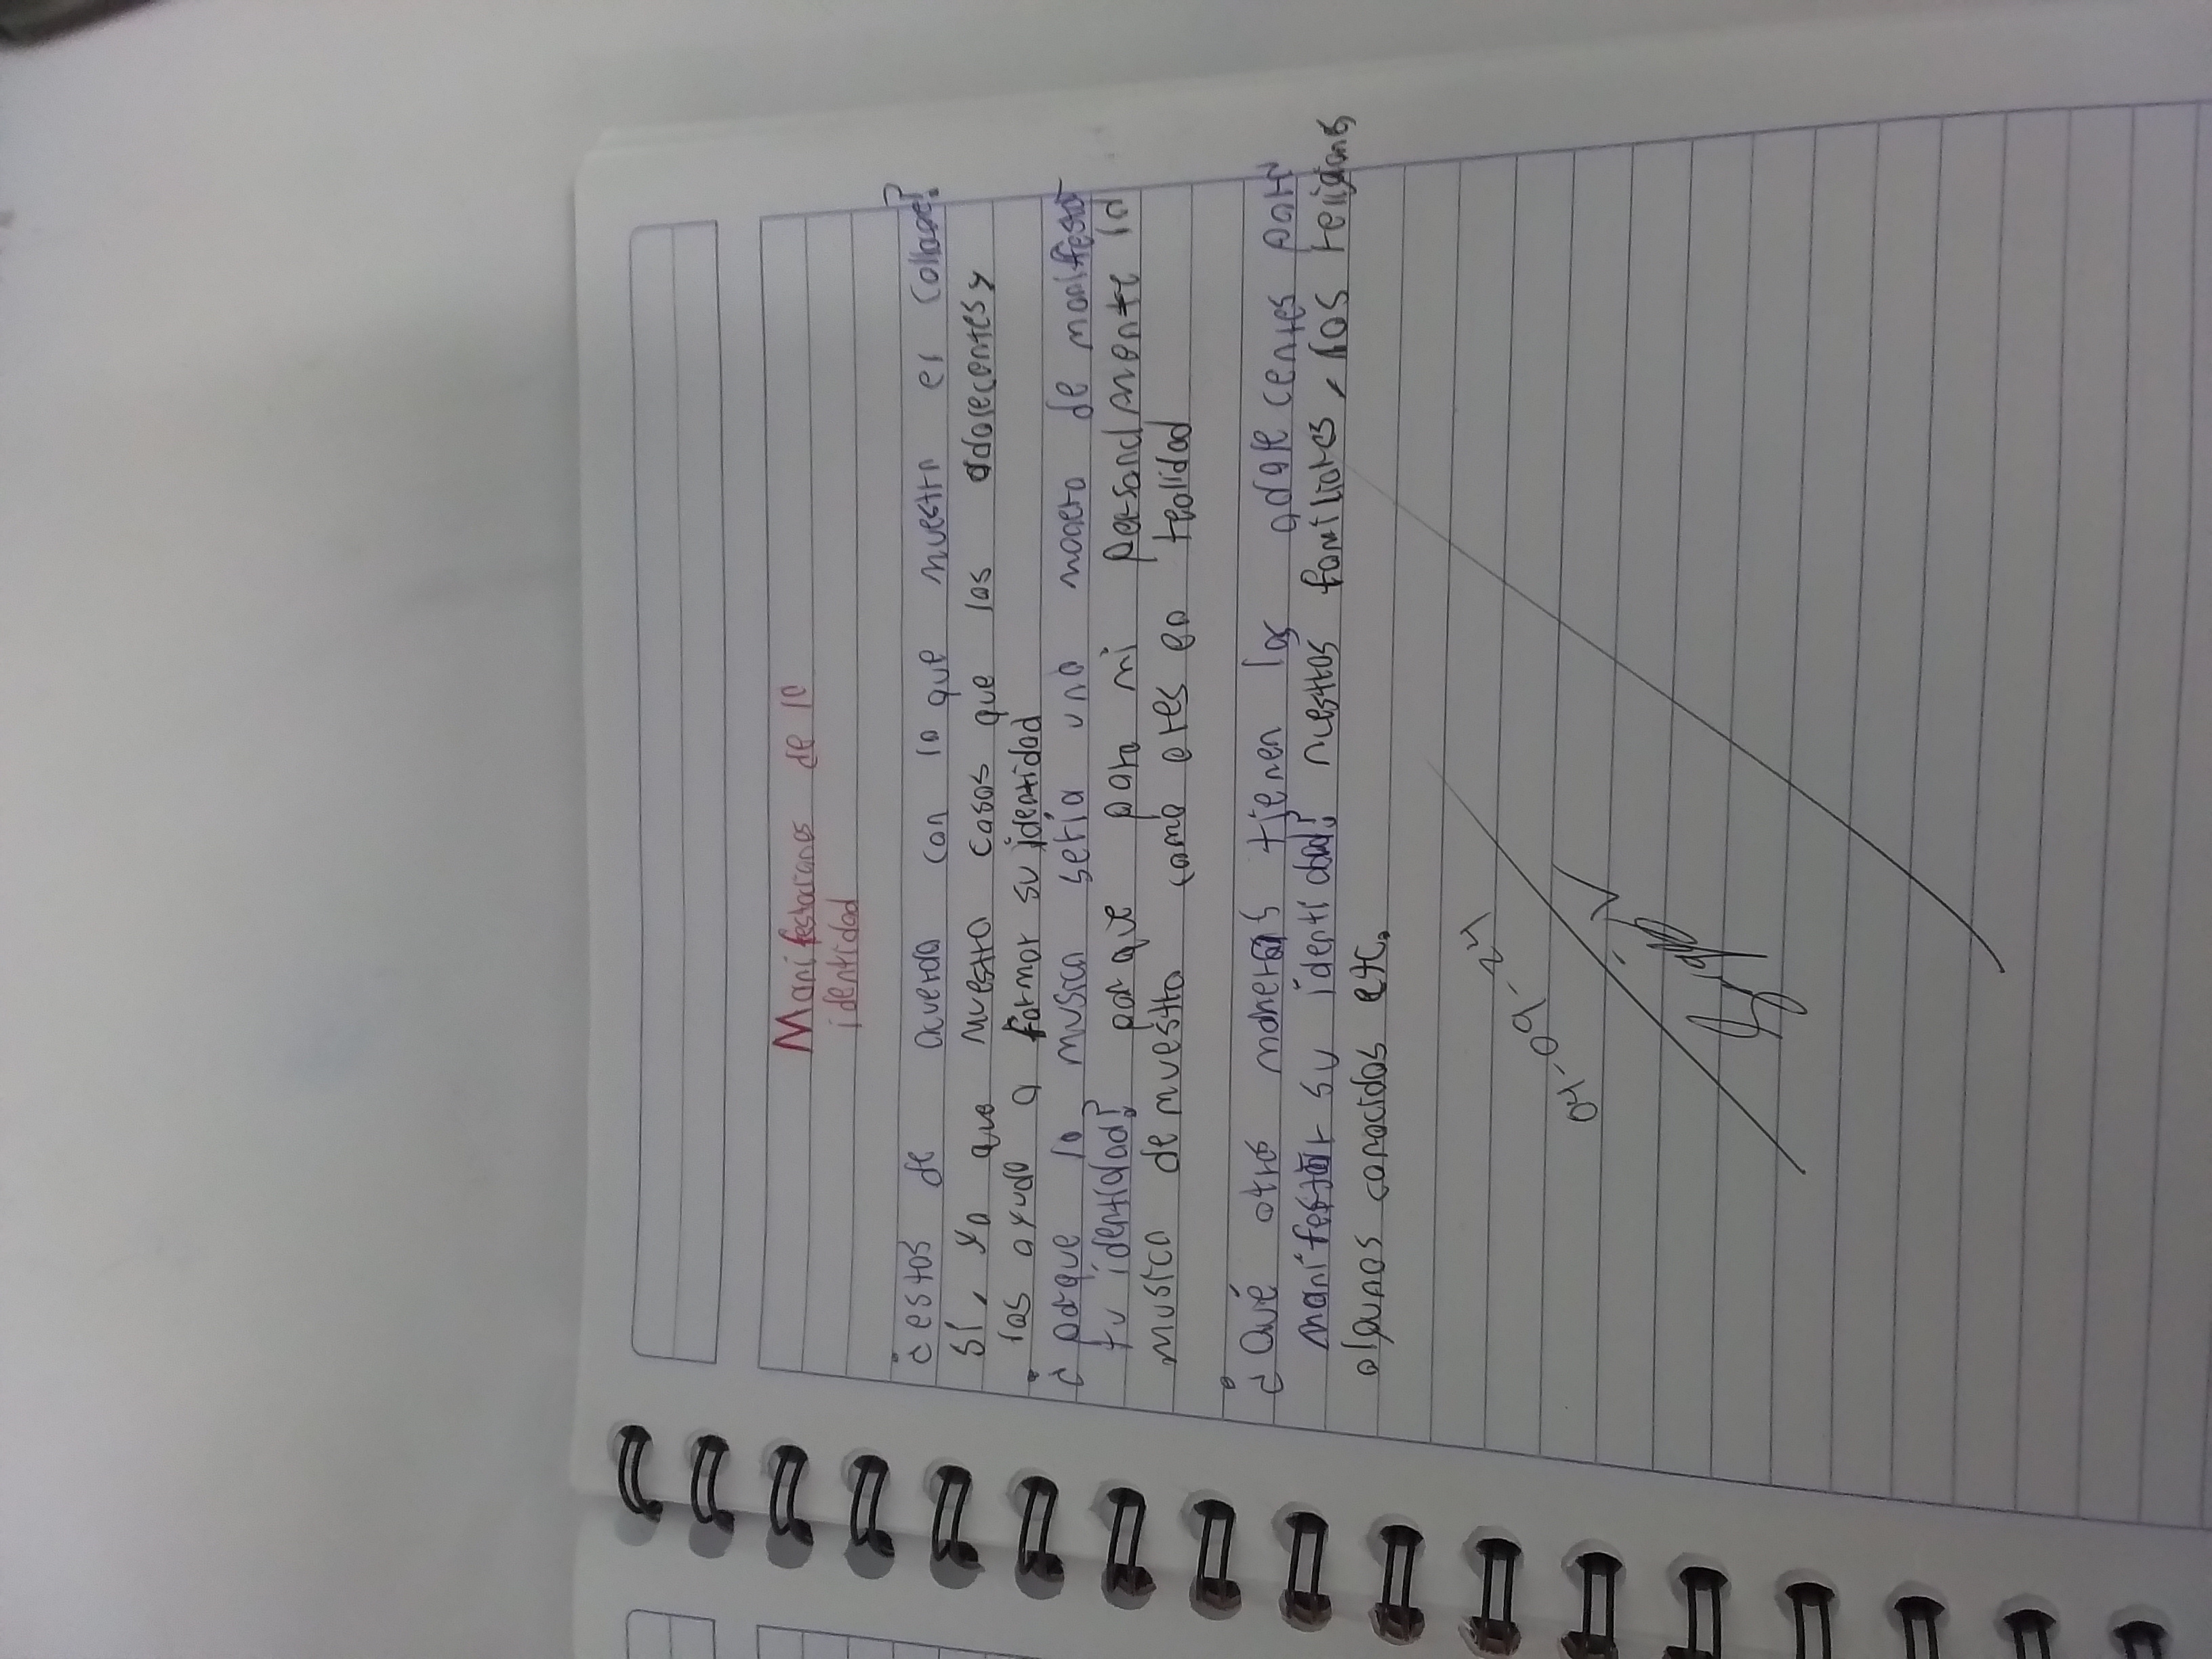 Manifestaciones de la
identidad
¿estas de acuerdo con lo que muestra el collage?
Sí, ya que muestra casos que las adolecentes y
las ayuda a formar su identidad
¿porque la musica sería una maera de manifestar
tu identidad? por que para mi personalmente la
musica de muestra como eres en realidad
¿Qué otras maneras tienen los adolecentes para
manifestar su identidad? nuestros familiares, las religiones
algunas conocidos etc.
04-09-24